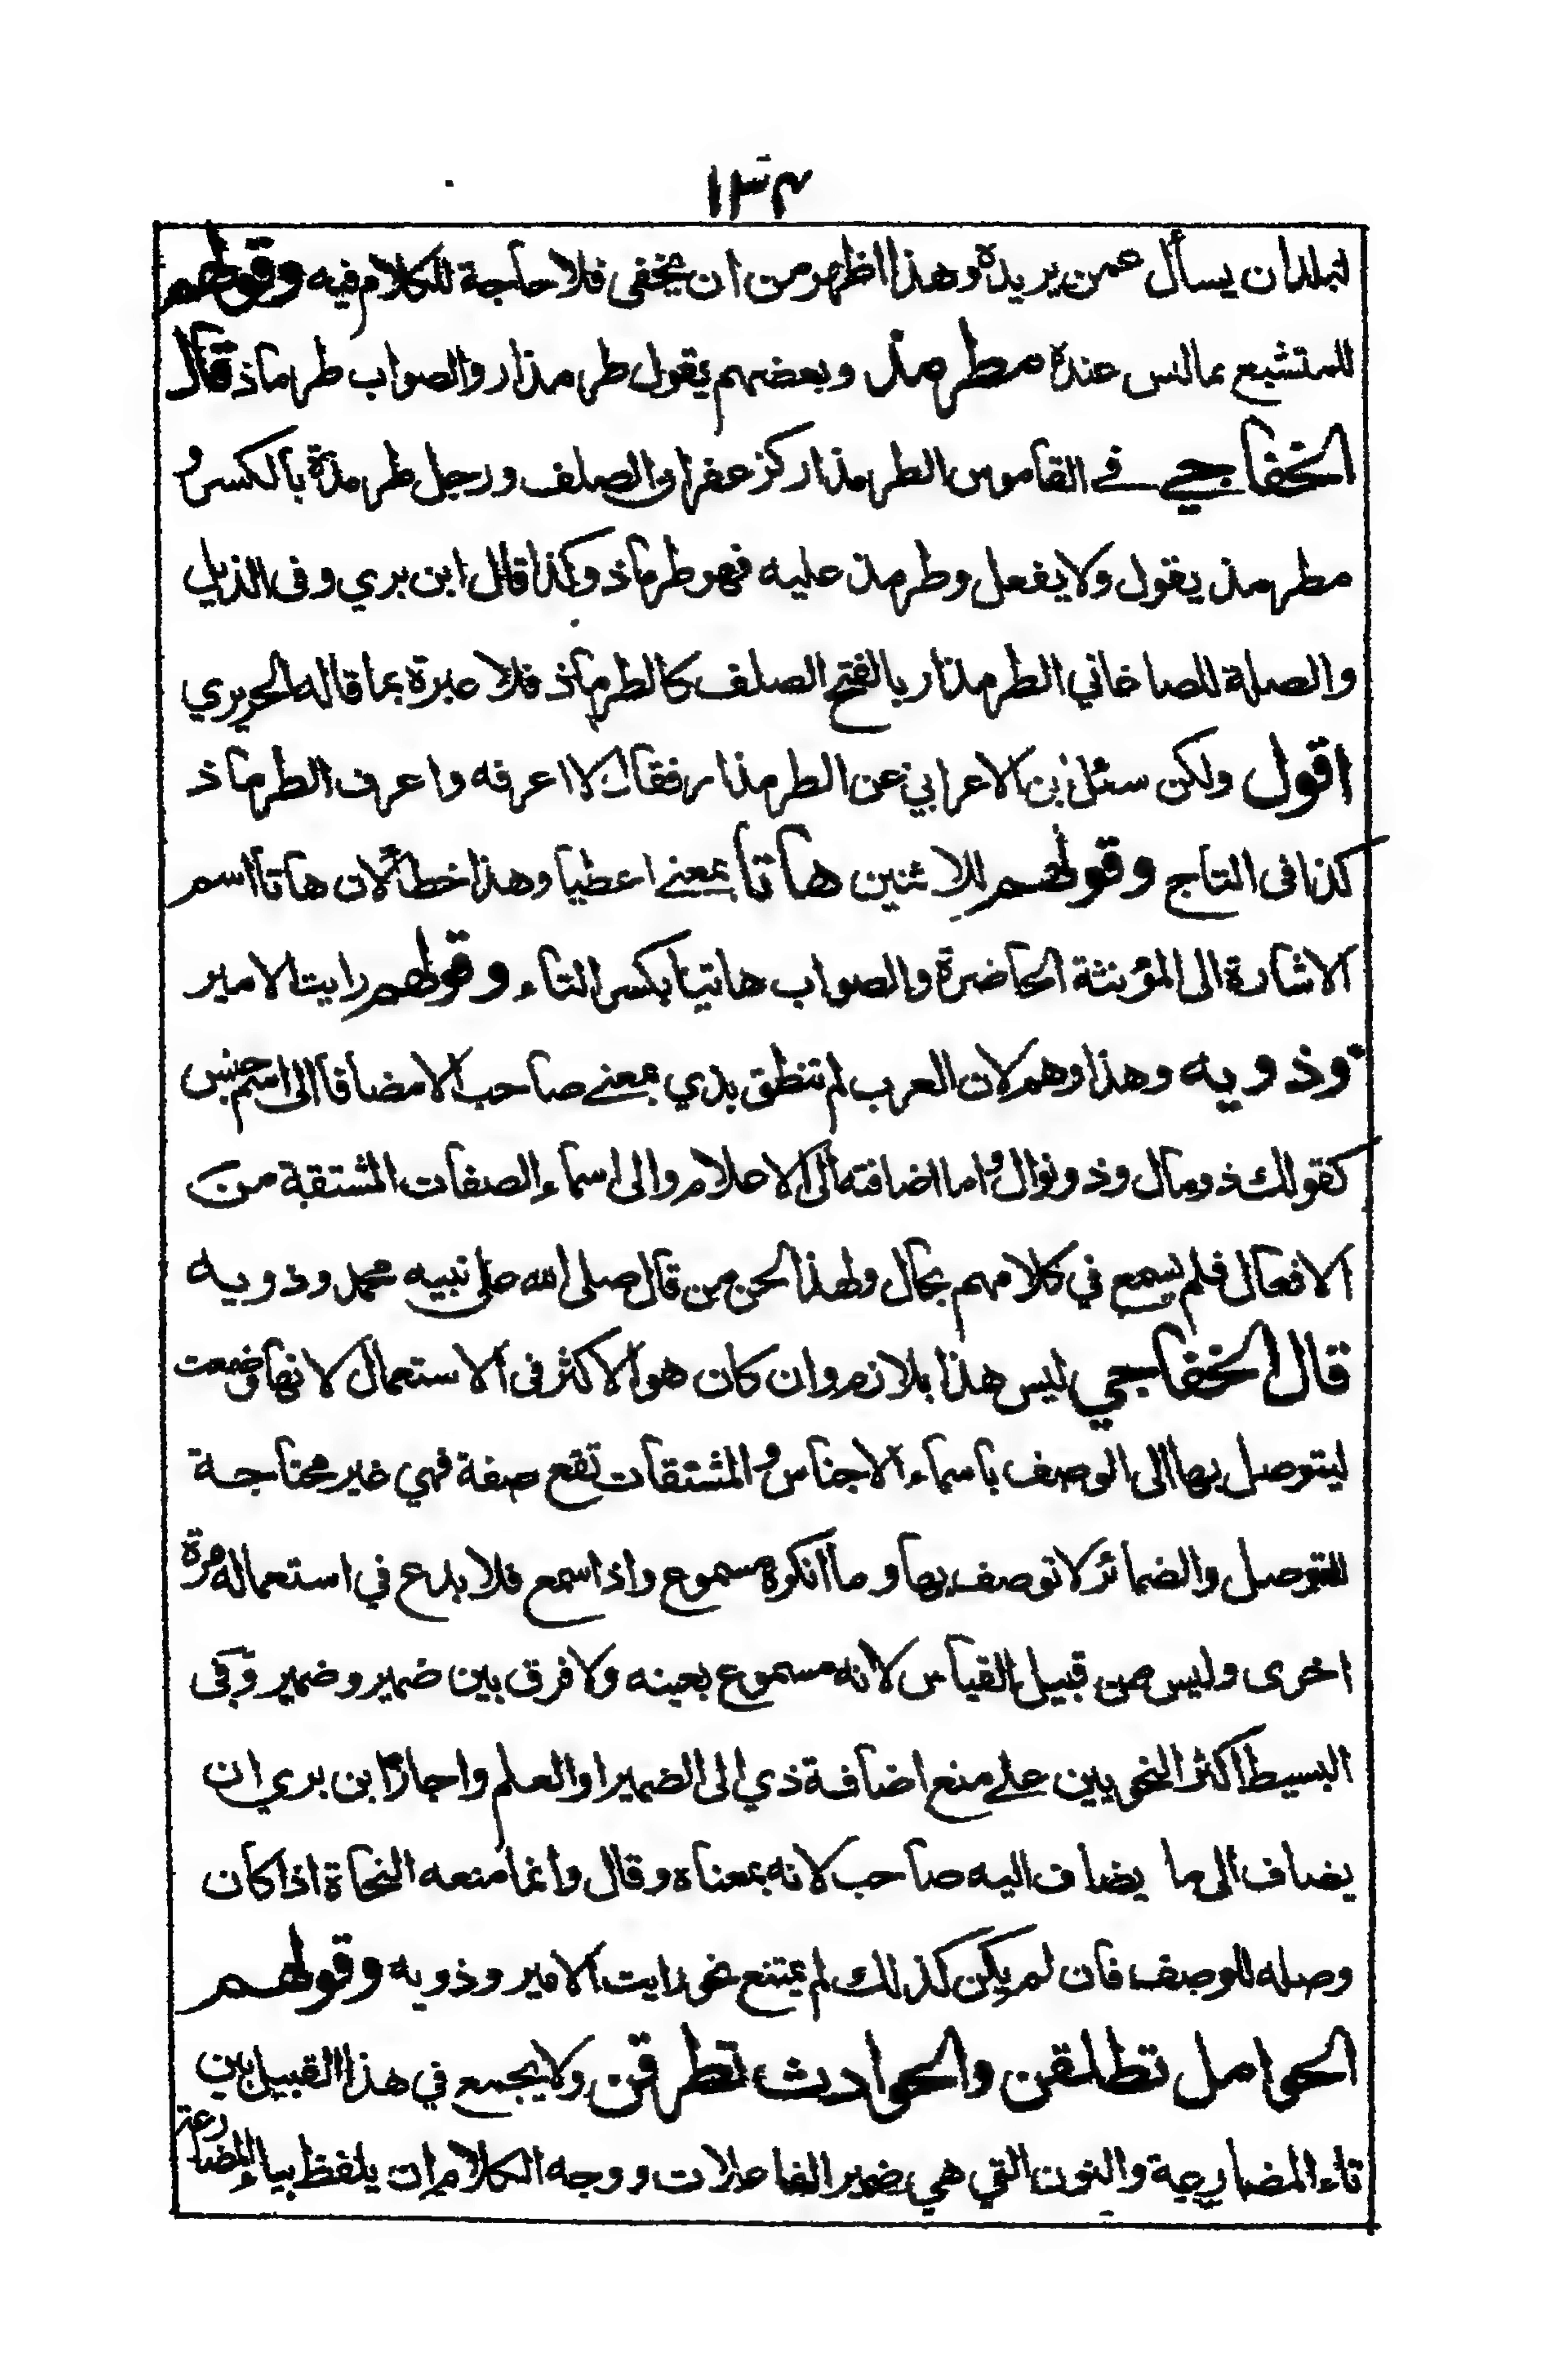 ١٣٤
لبلدان يسأل عمن يريده وهذا اظهر من ان يخفى فلا حاجة للكلام فيه وقولهم
للمتشبع بماليس عنده مطرمذ وبعضهم يقول طرمذار والصواب طرماذ قال
الخفاجي في القاموس الطرمذار كزعفران الصلف ورجل طرمذة بالكسر و
مطرمذ يقول ولا يفعل وطرمذ عليه فهو طرماذ وكذا قال ابن بري وفى الذيل
والصلة للصاغاني الطرمذار بالفتح الصلف كالطرماذ فلا عبرة بما قاله الحريري
اقول ولكن سئل بن الاعرابي عن الطرمذار فقال لا اعرفه واعرف الطرماذ
كذا فى التاج وقولهم للاثنين هاتا بمعنے اعطيا وهذا خطأ لان هاتا اسم
الاشارة الى المؤنثة الحاضرة والصواب هاتيا بكسر التاء وقولهم رايت الامير
وذويه وهذا وهم لان العرب لم تنطق بذي بمعنے صاحب الا مضافا الى اسم جنس
كقولك ذو مال وذو نوال و اما اضافته الى الاعلام والى اسماء الصفات المشتقة من
الافعال فلم يسمع في كلامهم بحال ولهذا لحن من قال صلى الله على نبيه محمد وذويه
قال الخفاجي ليس هذا بلازم وان كان هو الاكثر فى الاستعمال لانها وضعت
ليتوصل بها الى الوصف باسماء الاجناس و المشتقات تقع صفة فهي غير محتاجة
للتوصل والضمائر لا توصف بها و ما انكره مسموع واذا سمع فلا بدع في استعماله مرة
اخرى وليس من قبيل القياس لانه مسموع بعينه ولا فرق بين ضمير وضمير وفى
البسيط اكثر النحويين على منع اضافة ذي الى الضمير او العلم واجاز ابن بري ان
يضاف الى ما يضاف اليه صاحب لانه بمعناه وقال وانما منعه النحاة اذا كان
وصله للوصف فان لم يكن كذلك لم يمتنع نحو رايت الامير وذويه وقولهم
الحوامل تطلقن والحوادث تطرقن ولا يجمع في هذا القبيل بين
تاء المضارعة والنون التي هي ضمير الفاعلات ووجه الكلام ان يلفظ بياء المضارعة